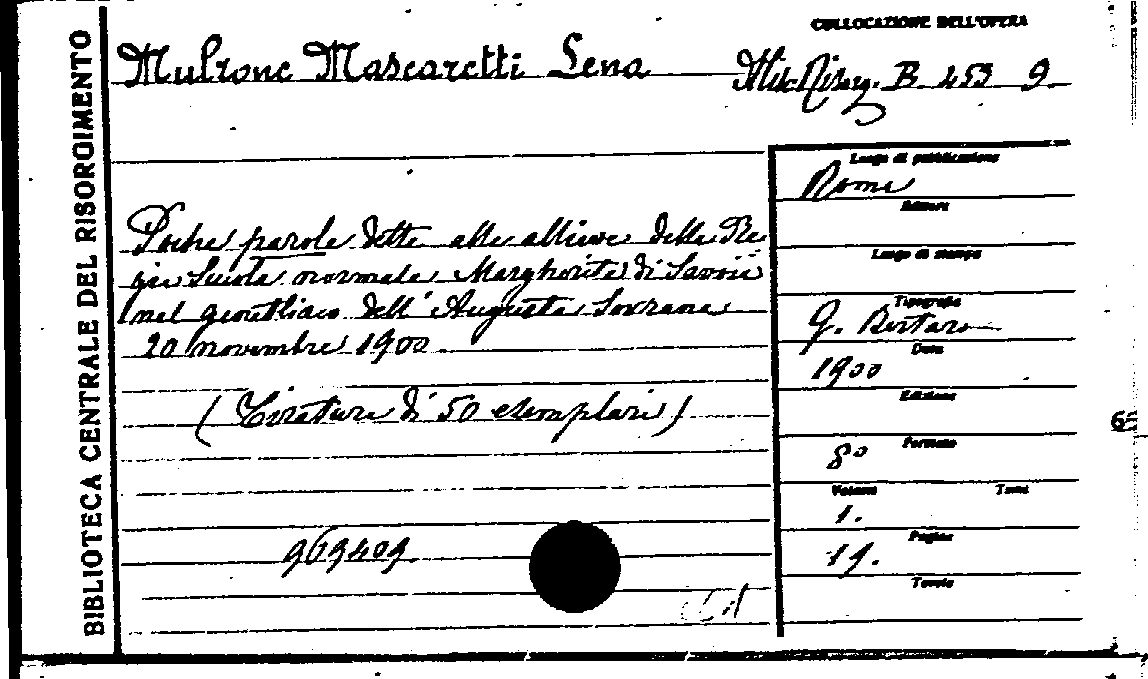 BIBLIOTECA CENTRALE DEL RISORGIMENTO
COLLOCAZIONE DELL'OPERA
Mulrone Mascaretti Lena
Misc. Risorg. B. 253 9.
Luogo di pubblicazione
Roma
Editore
Luogo di stampa
Poche parole dette alle allieve della Re
gia Scuola normale Margherita di Savoia
nel genetliaco dell'Augusta Sovrana
20 novembre 1900
(Tiratura di 50 esemplari)
Tipografia
G. Bertero
Data
1900
Edizione
Formato
8°
Volumi
Tomi
1.
Pagine
19.
Tavole
969409